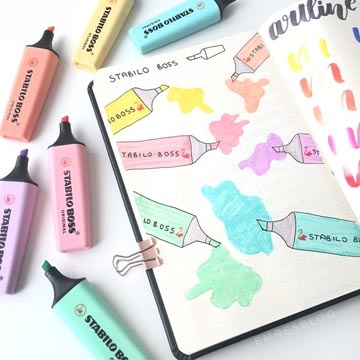 STABILO BOSS
ORIGINAL
STABILO BOSS
STABILO BOSS
STABILO BOSS
ORIGINAL
STABILO BOSS
STABILO BOSS
STABILO BOSS
LO BOSS
STABI
STABILO BOSS
STABILO BOSS
STABILO
EMRESBLOG